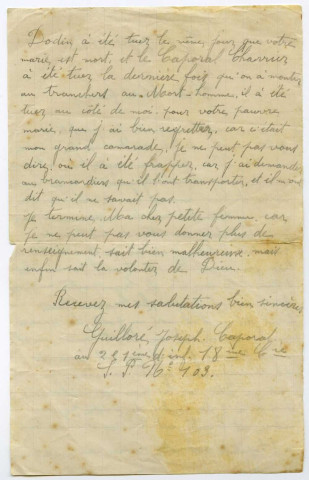 Dodin, à été tuez le même jour que votre
marie, est mort, et le Caporal Charrier
à été tuez la dernière fois qu'on a montez
au tranchers, au Mort-homme, il à été
tuez au côté de moi, pour votre pauvre
marie, que j'ai bien regrettez, car c'était
mon grand camarade, je ne peut pas vous
dire, ou il à été frappez, car j'ai demandé
au brancardiers qui il l'ont transporter, et il m'ont
dit qu'il ne savait pas.
Je termine, Ma cher petite femme, car
je ne peut pas vous donner plus de
renseignement, sait bien malheureux, mais
enfin sait la volonter de Dieu.
Recevez mes salutations bien sincères
Guilloré, Joseph, Caporal
au 221ème d'inf. 18ème Cie
S. P. No 103.